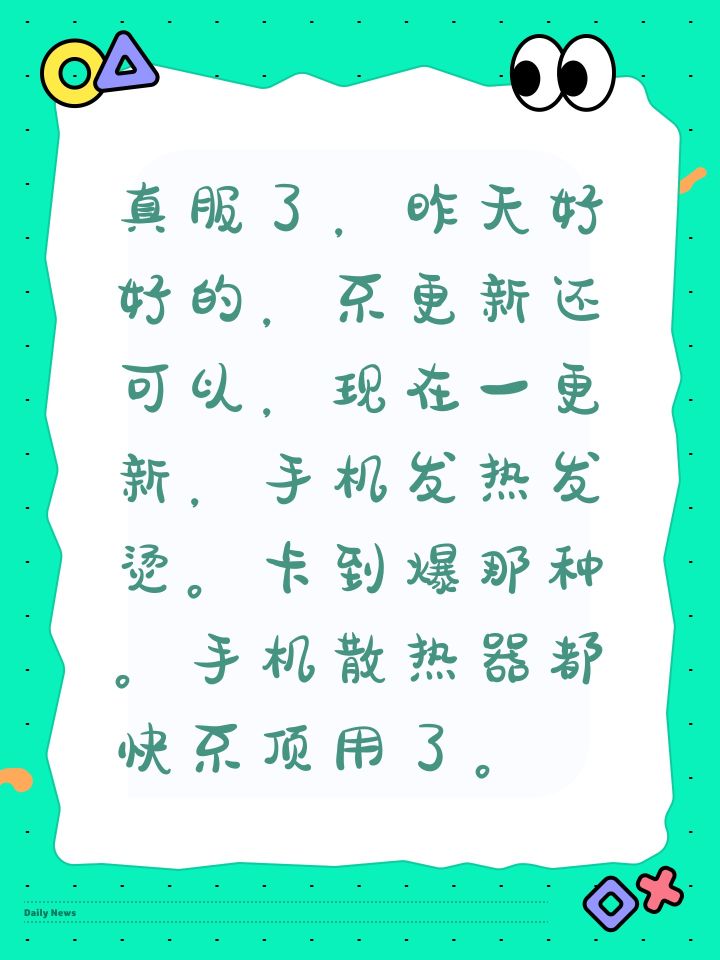 真服了，昨天好
好的，不更新还
可以，现在一更
新，手机发热发
烫。卡到爆那种
。手机散热器都
快不顶用了。
Daily News